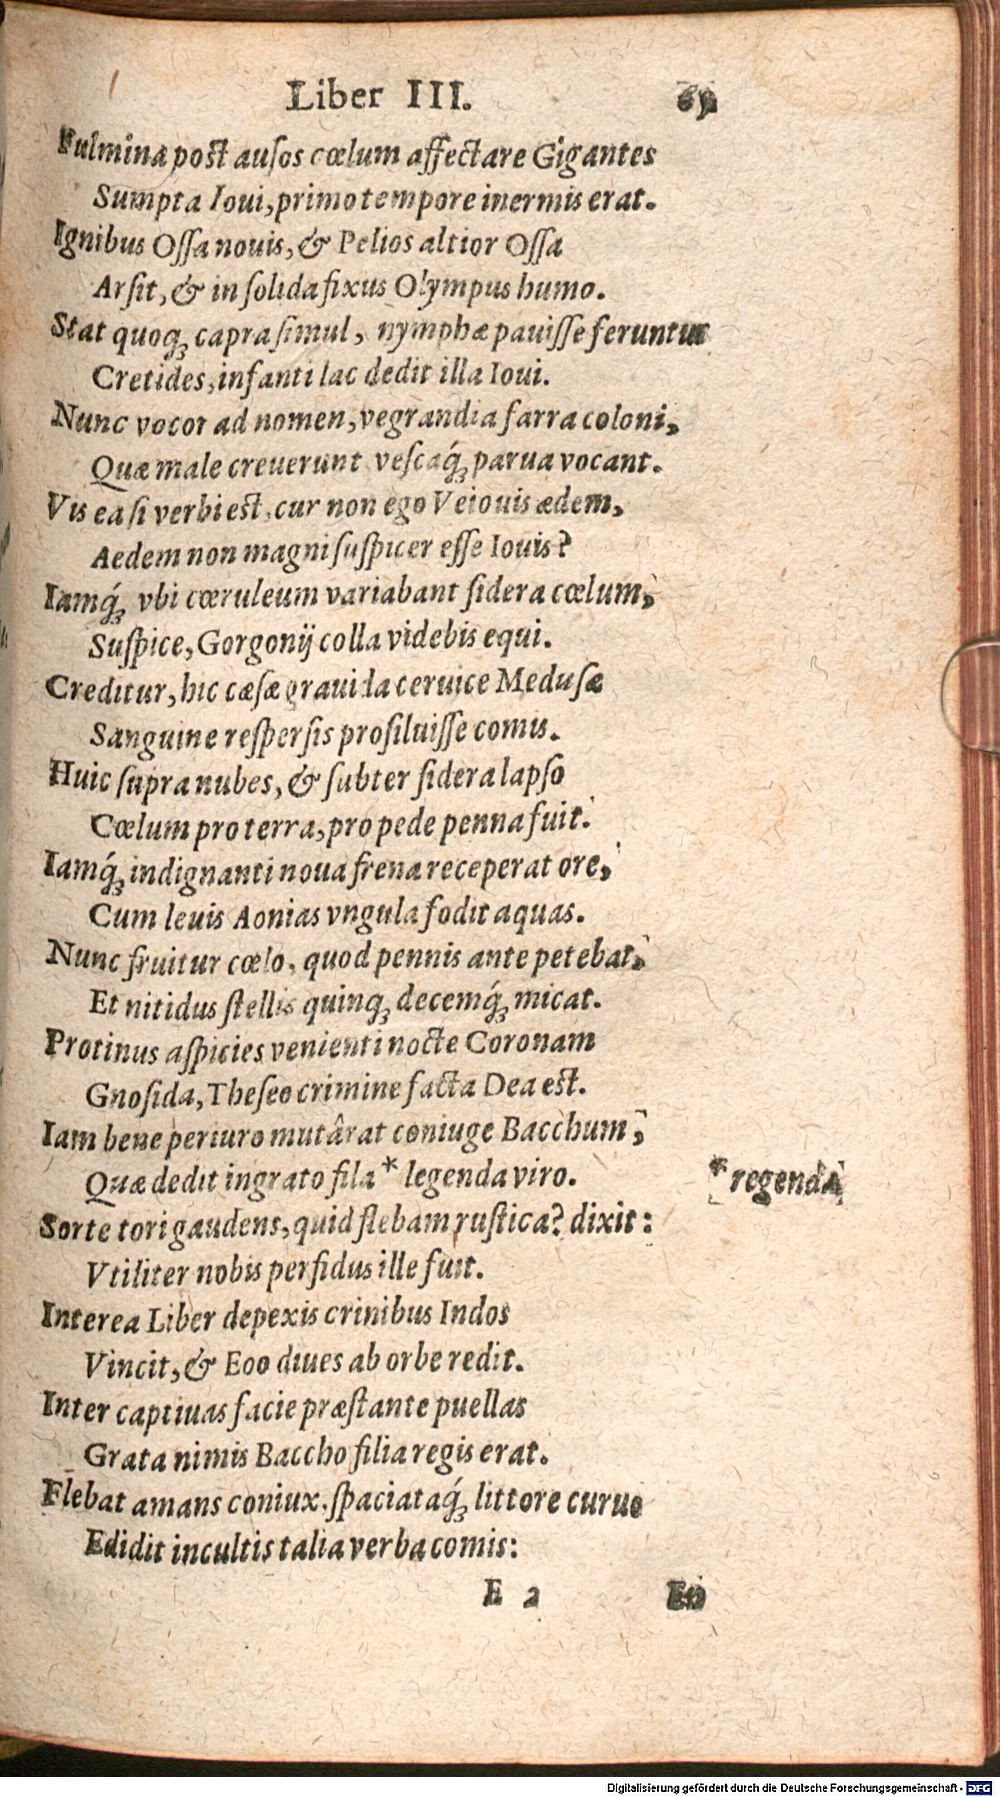 Liber III. 69
Fulmina post ausos cœlum affectare Gigantes
Sumpta Ioui, primo tempore inermis erat.
Ignibus Ossa nouis, & Pelios altior Ossa
Arsit, & in solida fixus Olympus humo.
Stat quoq; capra simul, nymphæ pauisse feruntur
Cretides, infanti lac dedit illa Ioui.
Nunc vocor ad nomen, vegrandia farra coloni,
Quæ male creuerunt vescaq́; parua vocant.
Vis ea si verbi est, cur non ego Veiouis ædem,
Aedem non magni suspicer esse Iouis?
Iamq́; vbi cœruleum variabant sidera cœlum,
Suspice, Gorgonij colla videbis equi.
Creditur, hic cæsæ grauida ceruice Medusæ
Sanguine respersis prosiluisse comis.
Huic supra nubes, & subter sidera lapso
Cœlum pro terra, pro pede penna fuit.
Iamq́; indignanti noua frena receperat ore,
Cum leuis Aonias vngula fodit aquas.
Nunc fruitur cœlo, quod pennis ante petebat,
Et nitidus stellis quinq; decemq́; micat.
Protinus aspicies venienti nocte Coronam
Gnosida, Theseo crimine facta Dea est.
Iam bene periuro mutârat coniuge Bacchum,
Quæ dedit ingrato fila * legenda viro.
* regenda
Sorte tori gaudens, quid flebam rustica? dixit:
Vtiliter nobis perfidus ille fuit.
Interea Liber depexis crinibus Indos
Vincit, & Eoo diues ab orbe redit.
Inter captiuas facie præstante puellas
Grata nimis Baccho filia regis erat.
Flebat amans coniux, spaciataq́; littore curuo
Edidit incultis talia verba comis:
E 2 En
Digitalisierung gefördert durch die Deutsche Forschungsgemeinschaft - DFG